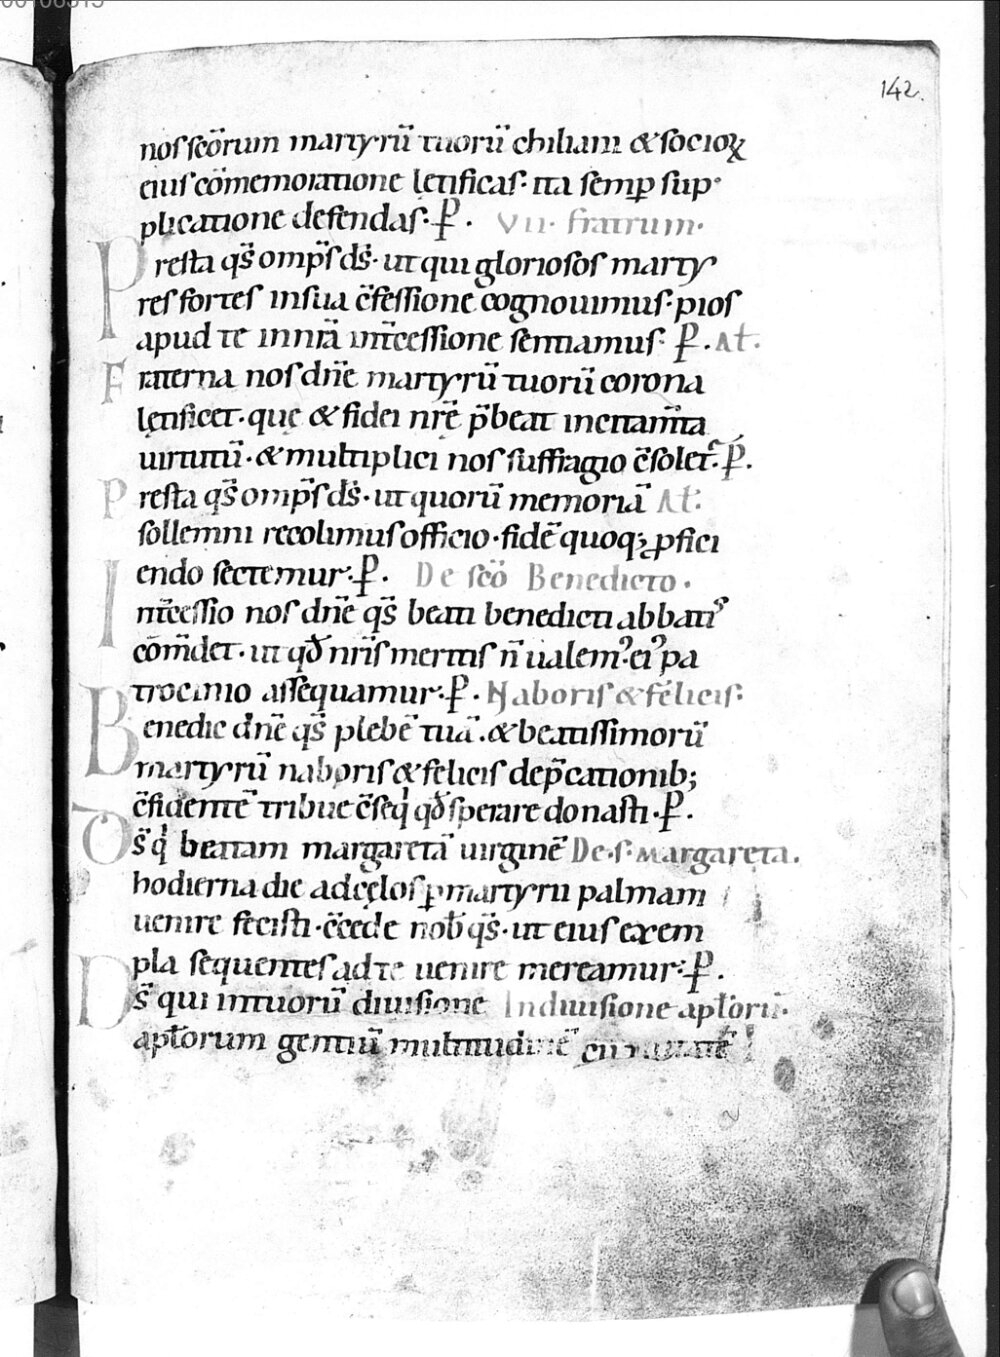 142.
nos scōrum martyrū tuorū chiliani & socioꝝ
eius cōmemoratione letificas· ita semꝑ sup·
plicatione defendas·P̵. VII· fratrum·
Presta qs̄ omp̄s ds̄· ut qui gloriosos marty
res fortes in sua c̄fessione cognouimus· pios
apud te in nr̄a int̄cessione sentiamus· P̵. At̄.
Fraterna nos dn̄e martyrū tuorū corona
lętificet· que & fidei nr̄ę p̄beat incitam̄ta
uirtutū· & multiplici nos suffragio c̄solet̄· P̵.
Presta qs̄ omp̄s ds̄· ut quorū memoriā At̄:
sollemni recolimus officio· fidē quoqꝫ ꝓfici
endo sectemur· P̵. De scō Benedicto.
Int̄cessio nos dn̄e qs̄ beati benedicti abbatis
cōm̄det· ut qđ nr̄is meritis n̄ ualem᾽· ei᾽ pa
trocinio assequamur· P̵. Naboris & felicis:
Benedic dn̄e qs̄ plebē tuā· & beatissimorū
martyrū naboris & felicis dep̄cationib;
c̄fidentē tribue c̄seq̇ qđ sperare donasti· P̵.
Ds̄ q̇ beatam margaretā uirginē De·s· margareta.
hodierna die ad cęlos ꝑ martyrii palmam
uenire fecisti· c̄cede nob̄ qs̄· ut eius exem
pla sequentes ad te uenire mereamur· P̵.
Ds̄ qui in tuorū diuisione In diuisione apl̄orū·
apl̄orum gentiū multitudinē